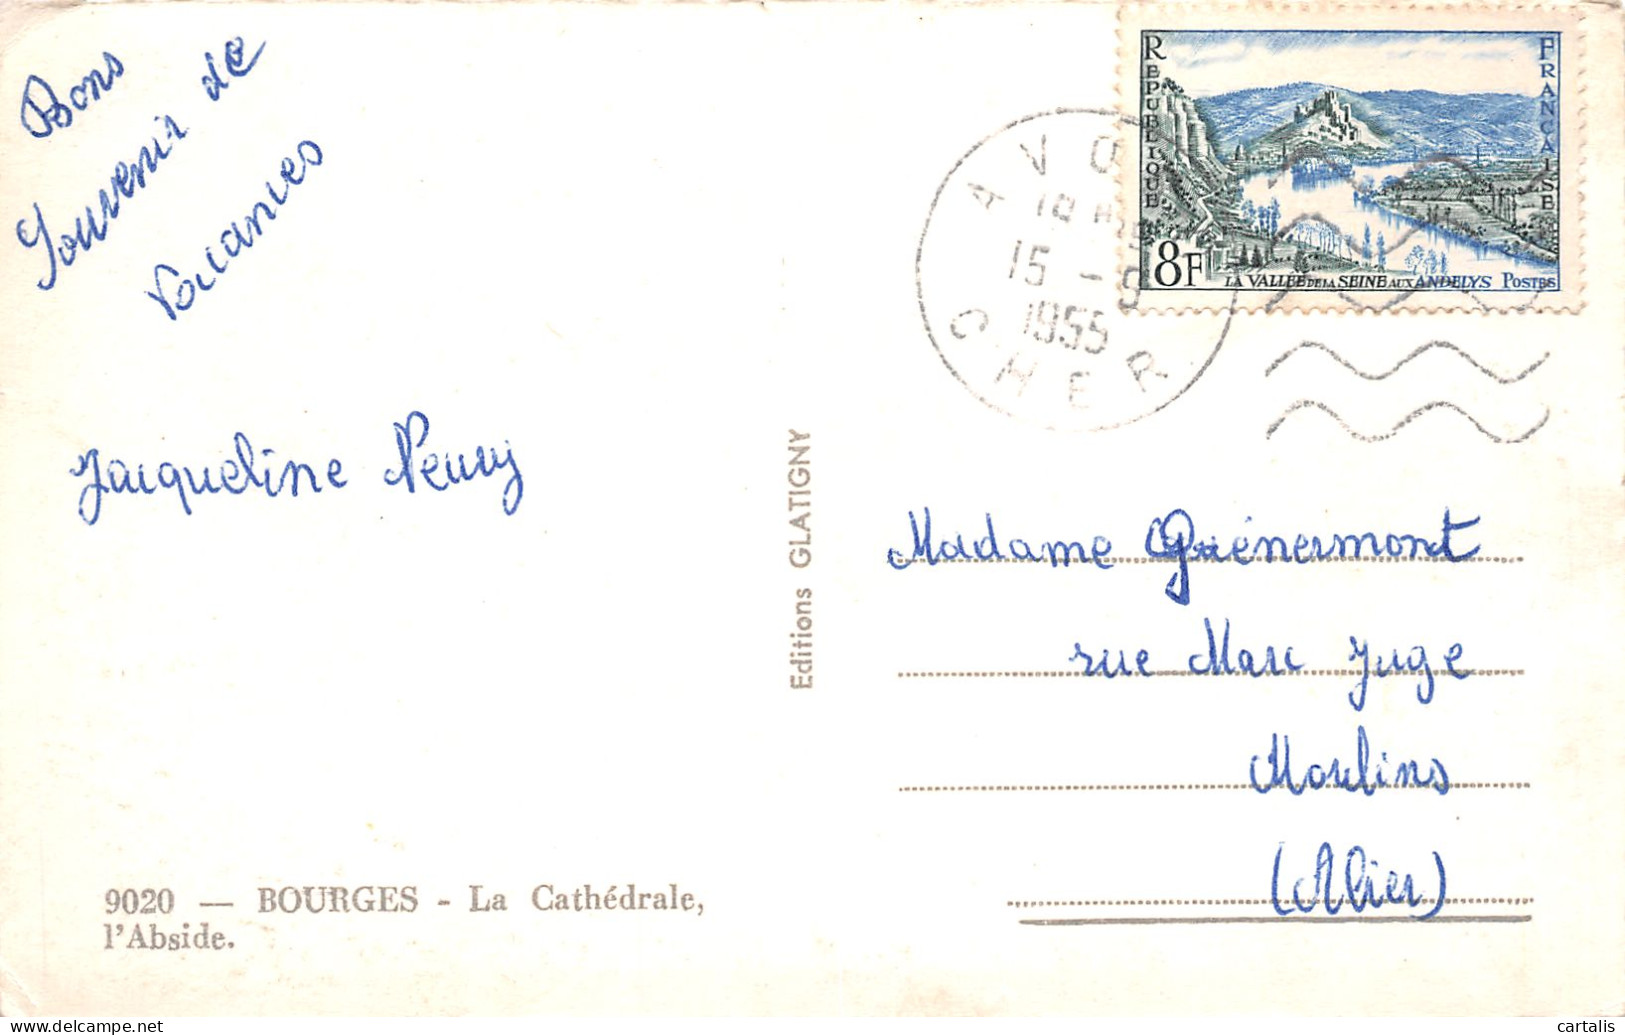 Bons
Souvenir de
Vacances
Jacqueline Neuvy
RÉPUBLIQUE FRANÇAISE
8F
LA VALLÉE DE LA SEINE AUX ANDELYS POSTES
AVORD
18H
15 - 9
1955
CHER
Editions GLATIGNY
Madame Guénermont
rue Marc Juge
Moulins
(Allier)
9020 — BOURGES - La Cathédrale,
l'Abside.
cartalis